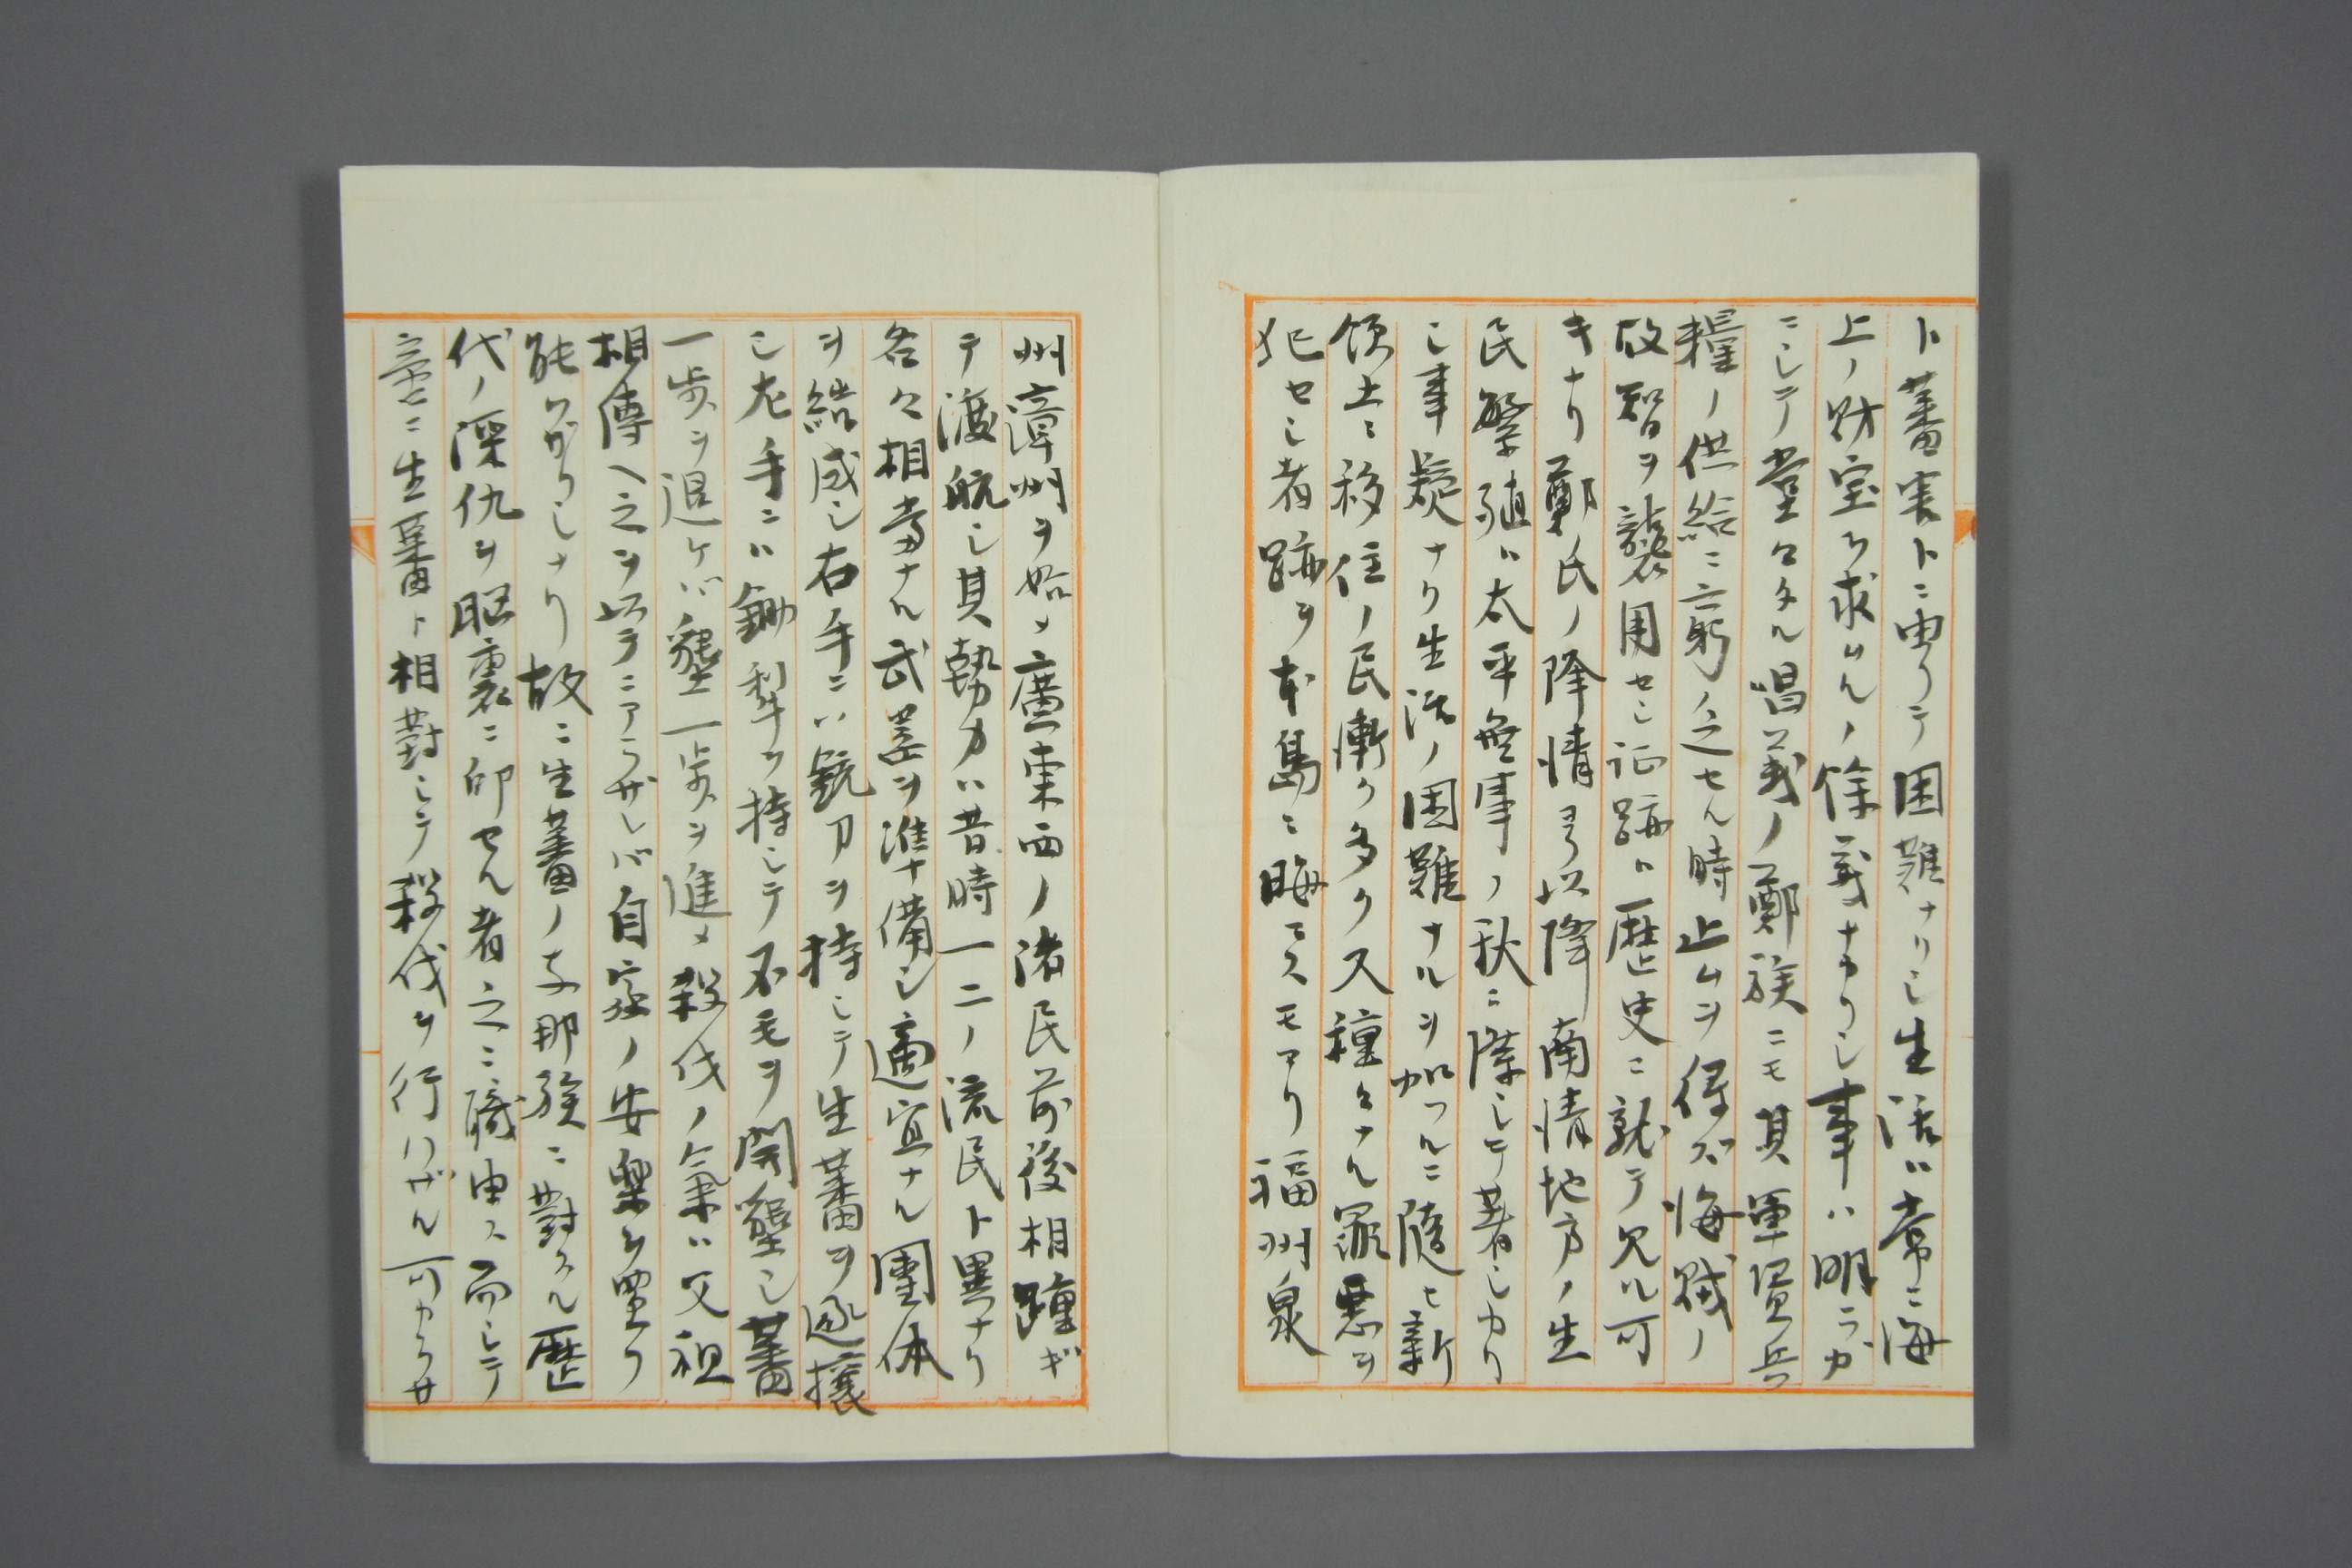 ト蕃害トニ由リテ困難ナリシ生活ハ常ニ海
上ノ財宝ヲ求ムルノ餘義ナカリシ事ハ明ニガ
ニシテ堂々タル唱義ノ鄭族ニモ其軍資兵
糧ノ供給ニ窮乏セル時止ムヲ得ズ海賊ノ
故智ヲ襲用セシ証跡ハ歴史ニ就テ見ル可
キナリ鄭氏ノ降清以降南清地方ノ生
民繁殖ハ太平無事ノ秋ニ際シテ著シカリ
シ事疑ナク生活ノ困難ナルヲ加フルニ随ヒ新
領土ニ移住ノ民漸ク多ク又種々ナル罪悪ヲ
犯セシ者跡ヲ本島ニ晦マスモアリ福州泉
州漳州ヲ始メ廣東西ノ諸民前後相踵ギ
テ渡航シ其勢力ハ昔時一二ノ流民ト異ナリ
各々相当ナル武器ヲ準備シ適宜ナル團体
ヲ結成シ右手ニハ銃刀ヲ持シテ生蕃ヲ逐攘
シ左手ニハ鋤犁ヲ持シテ不毛ヲ開墾シ蕃
一歩ヲ退ケバ墾一歩ヲ進メ殺伐ノ氣ハ父祖
相傳ヘ之ヲ以テニアラザレバ自家ノ安樂ヲ買フ
能ハザリシナリ故ニ生蕃ノ支那族ニ對スル歴
代ノ深仇ヲ脳裏ニ印セル者之ニ職由ス而シテ
ニ生蕃ト相對シテ殺伐ヲ行ハザル可カラサ